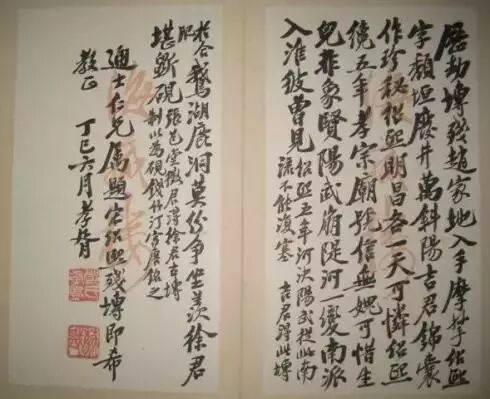 歷劫塼殘趙家地入手摩挲紹熙
字頹垣廢井萬斜陽吉君錦囊
作珍秘紹熙明昌各一天可憐紹熙
纔五年孝宗廟號信無媿可惜生
兒非象賢陽武崩隄河一變南派
入淮彼曾見
紹熙五年河決陽武從此南
流不能復塞 吉君得此塼
鵝湖鹿洞莫紛爭坐羨徐君
堪斲硯
張芑堂徵君得徐君古塼
制以為硯錢竹汀宮詹銘之
士仁兄屬題宋紹熙殘塼即希
教正 丁巳六月孝胥